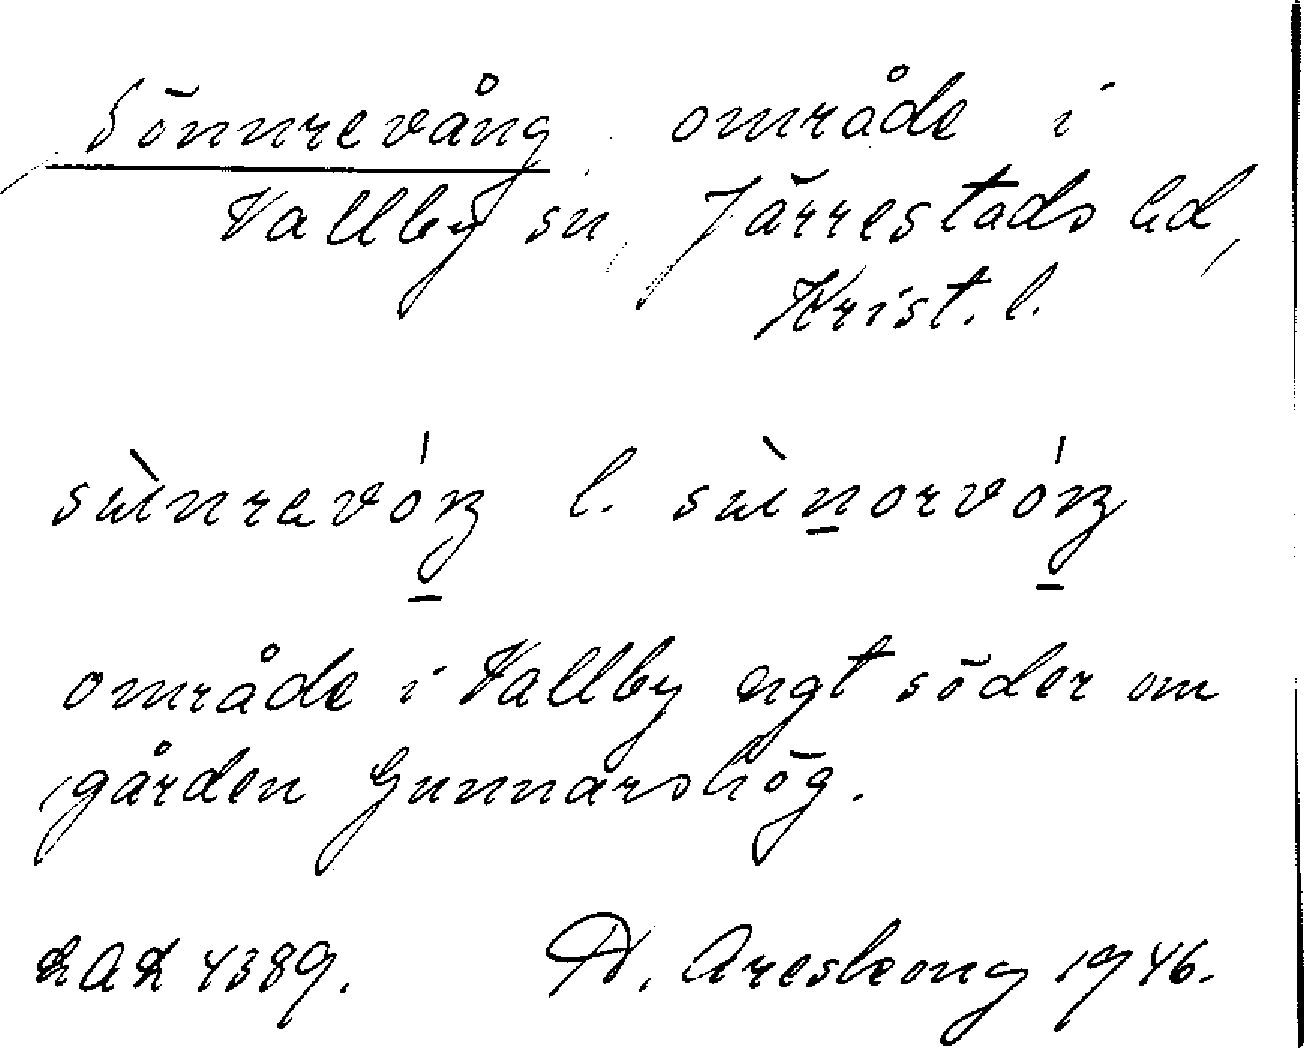 Sönnrevång område i
Vallby sn, Järrestads hd,
Krist. l.
område i Vallby ägt söder om
gården Gunnarshög.
4389. Aresskoug 1946.